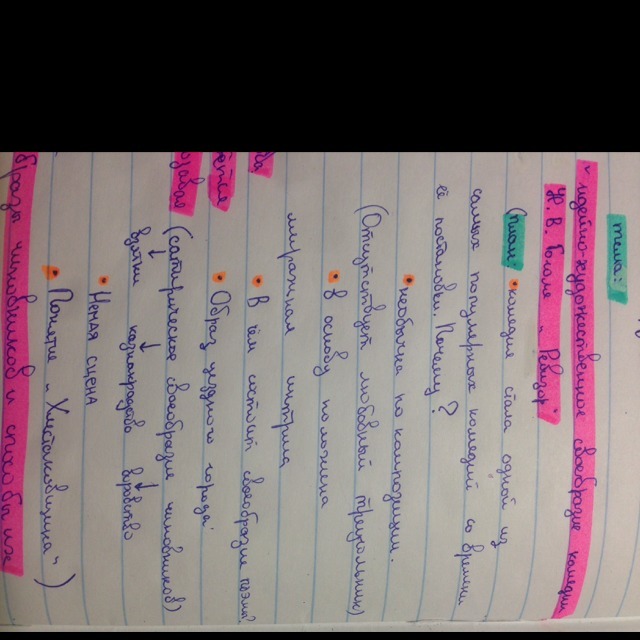 тема:
"идейно-художественное своеобразие комедии
Н. В. Гоголя "Ревизор"
(план: • комедия стала одной из
самых популярных комедий со времени
её постановки. Почему?
• необычна по композиции.
(Отсутствует любовный треугольник)
• в основу положена
миражная интрига
• В чём состоит своеобразие поэмы?
• Образ уездного города.
(сатирическое своеобразие чиновников)
взятки казнокрадство воровство
• Немая сцена
• Понятие "Хлестаковщина")
образы чиновников и способы их